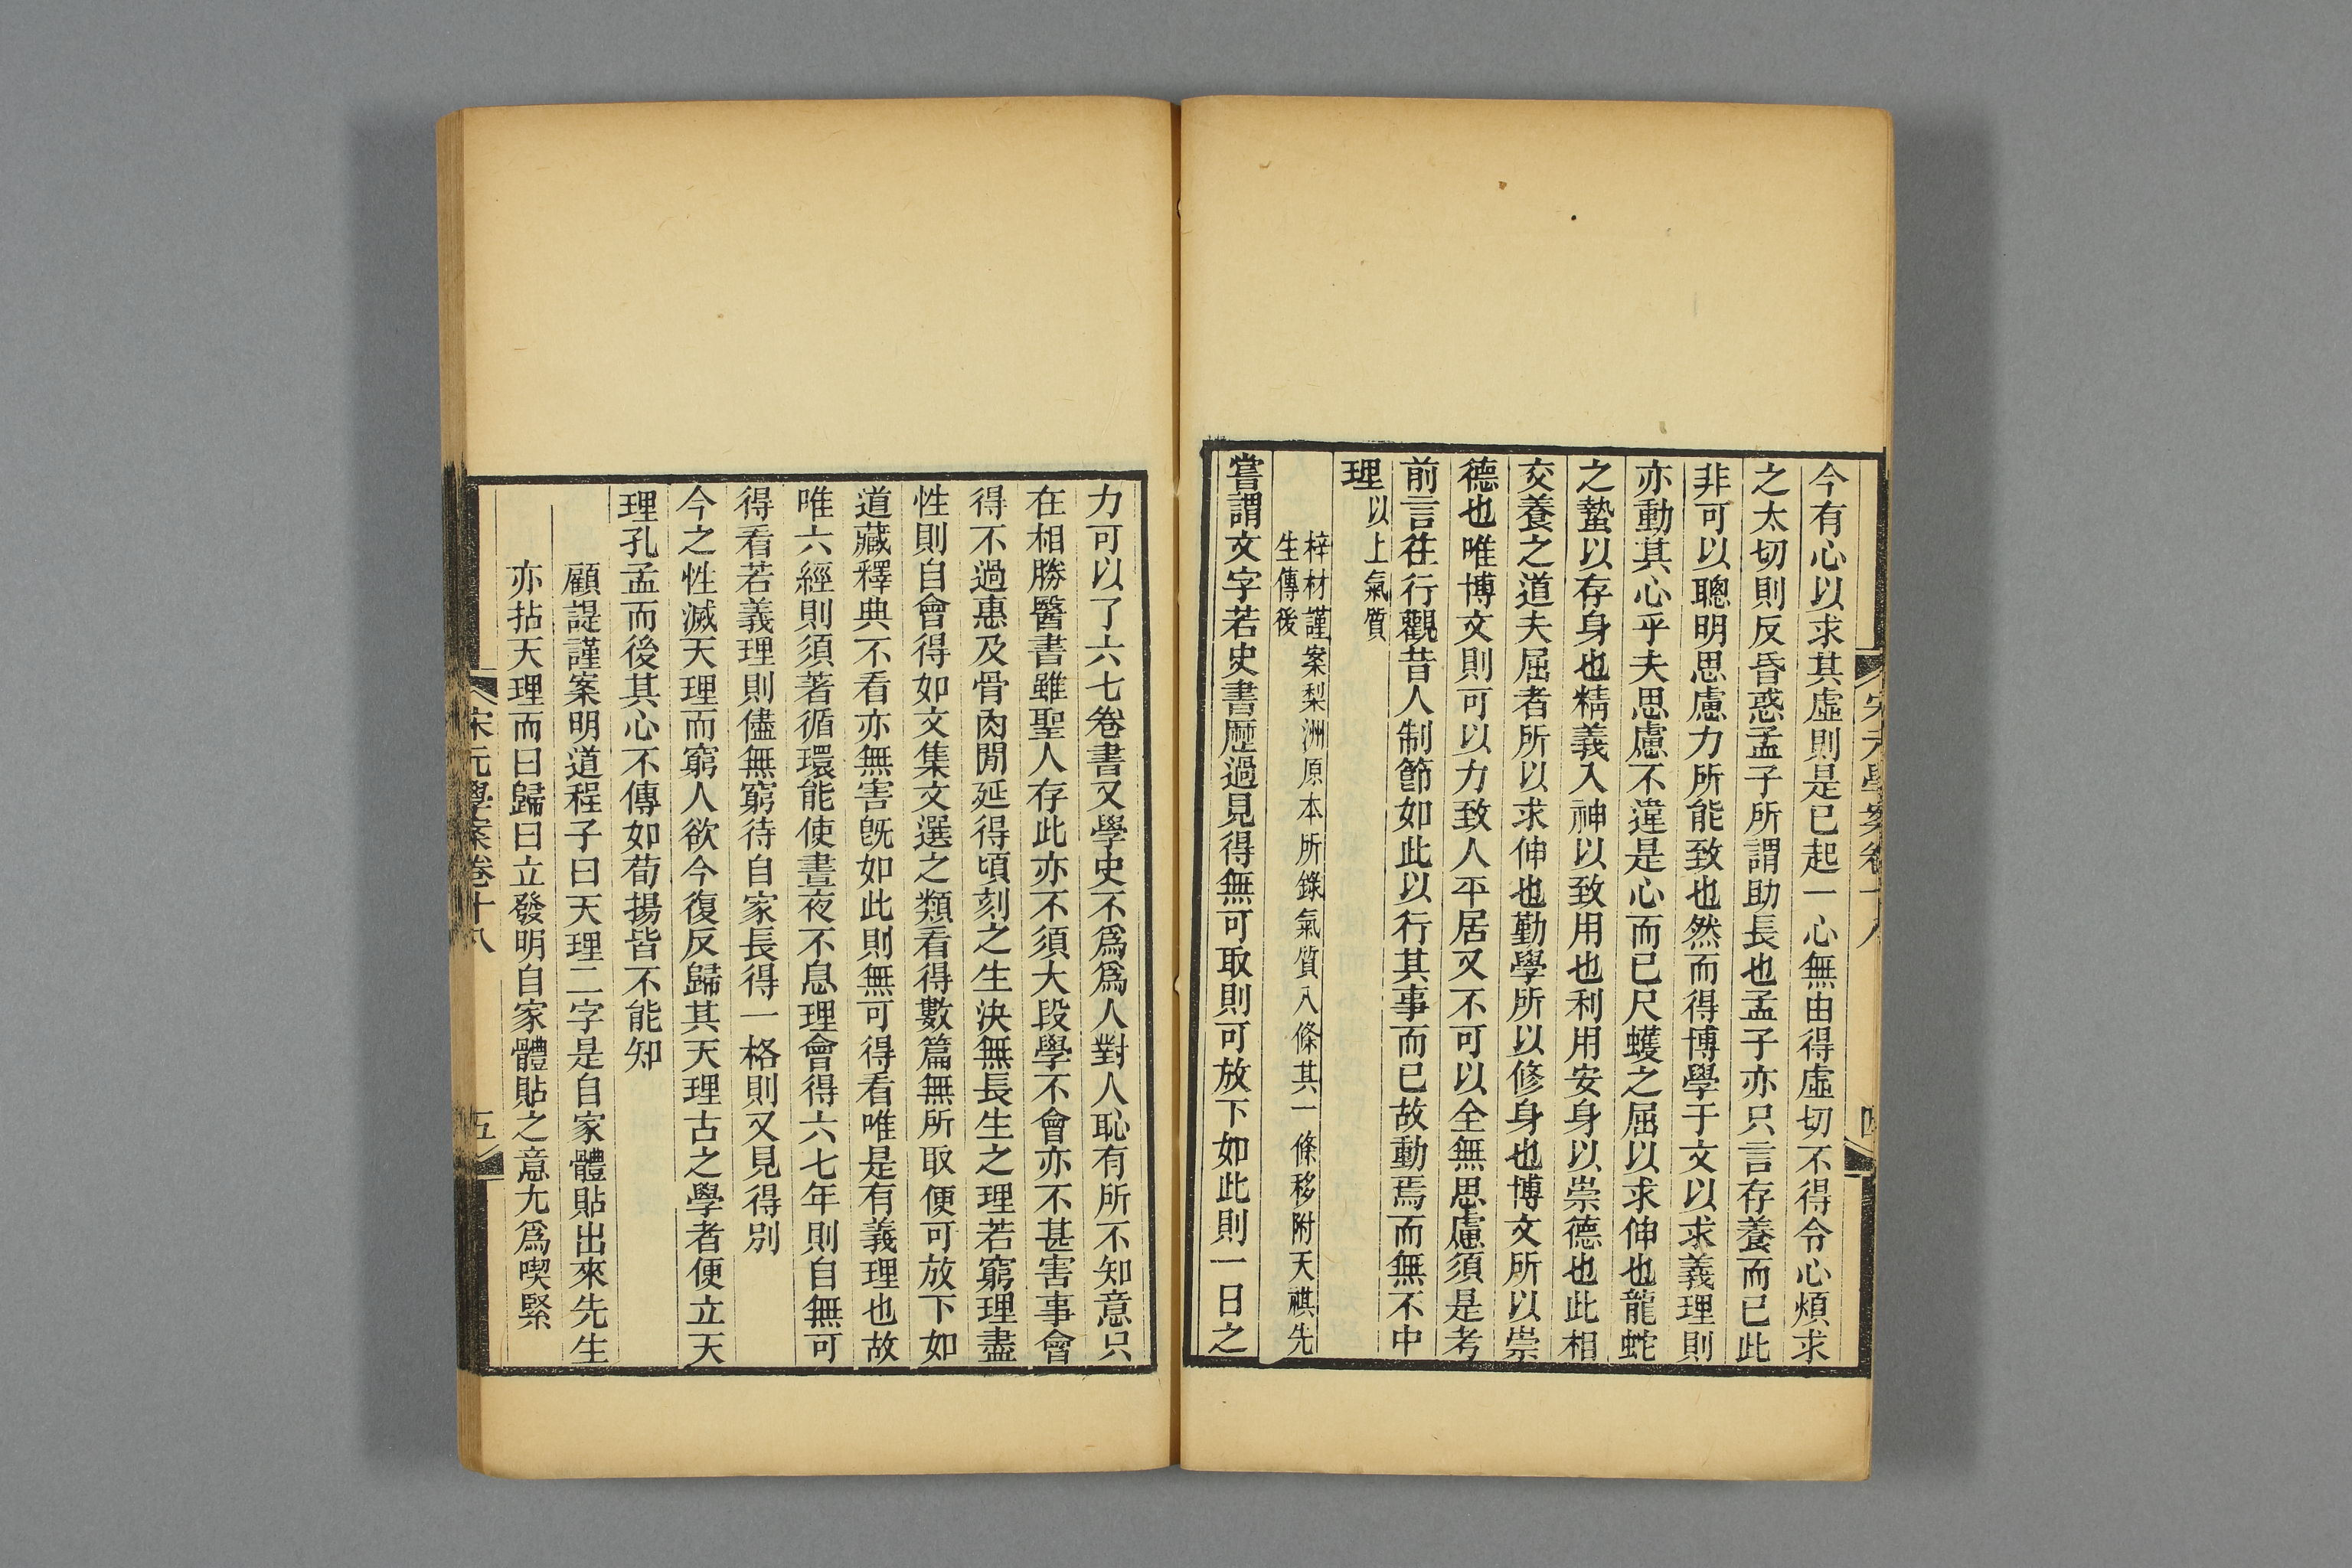 今有心以求其虛則是已起一心無由得虛切不得令心煩求
之太切則反昏惑孟子所謂助長也孟子亦只言存養而已此
非可以聰明思慮力所能致也然而得博學于文以求義理則
亦動其心乎夫思慮不違是心而已尺蠖之屈以求伸也龍蛇
之蟄以存身也精義入神以致用也利用安身以崇德也此相
交養之道夫屈者所以求伸也勤學所以修身也博文所以崇
德也唯博文則可以力致人平居又不可以全無思慮須是考
前言往行觀昔人制節如此以行其事而已故動焉而無不中
理以上氣質
梓材謹案梨洲原本所錄氣質八條其一條移附天祺先
生傳後
嘗謂文字若史書歷過見得無可取則可放下如此則一日之
力可以了六七卷書又學史不爲爲人對人恥有所不知意只
在相勝醫書雖聖人存此亦不須大段學不會亦不甚害事會
得不過惠及骨肉閒延得頃刻之生決無長生之理若窮理盡
性則自會得如文集文選之類看得數篇無所取便可放下如
道藏釋典不看亦無害旣如此則無可得看唯是有義理也故
唯六經則須著循環能使晝夜不息理會得六七年則自無可
得看若義理則儘無窮待自家長得一格則又見得別
今之性滅天理而窮人欲今復反歸其天理古之學者便立天
理孔孟而後其心不傳如荀揚皆不能知
顧諟謹案明道程子曰天理二字是自家體貼出來先生
亦拈天理而曰歸曰立發明自家體貼之意尤爲喫緊
宋元學案卷十八
五